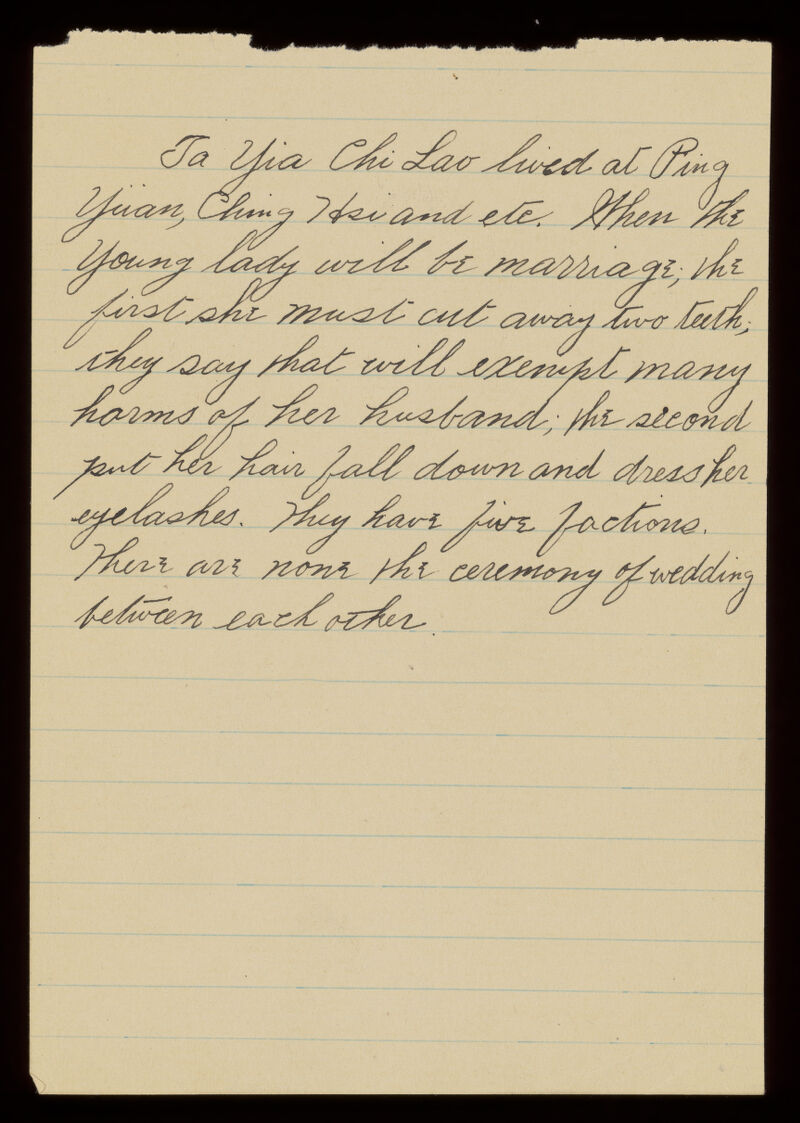 Ta Yia Chi Lao lived at Ping
Yüan, Ching Hsi and etc. When the
Young lady will be marriage; the
first she must cut away two teeth;
they say that will exempt many
harms of her husband; the second
put her hair fall down and dress her
eyelashes. They have five factions.
There are none the ceremony of wedding
between each other.